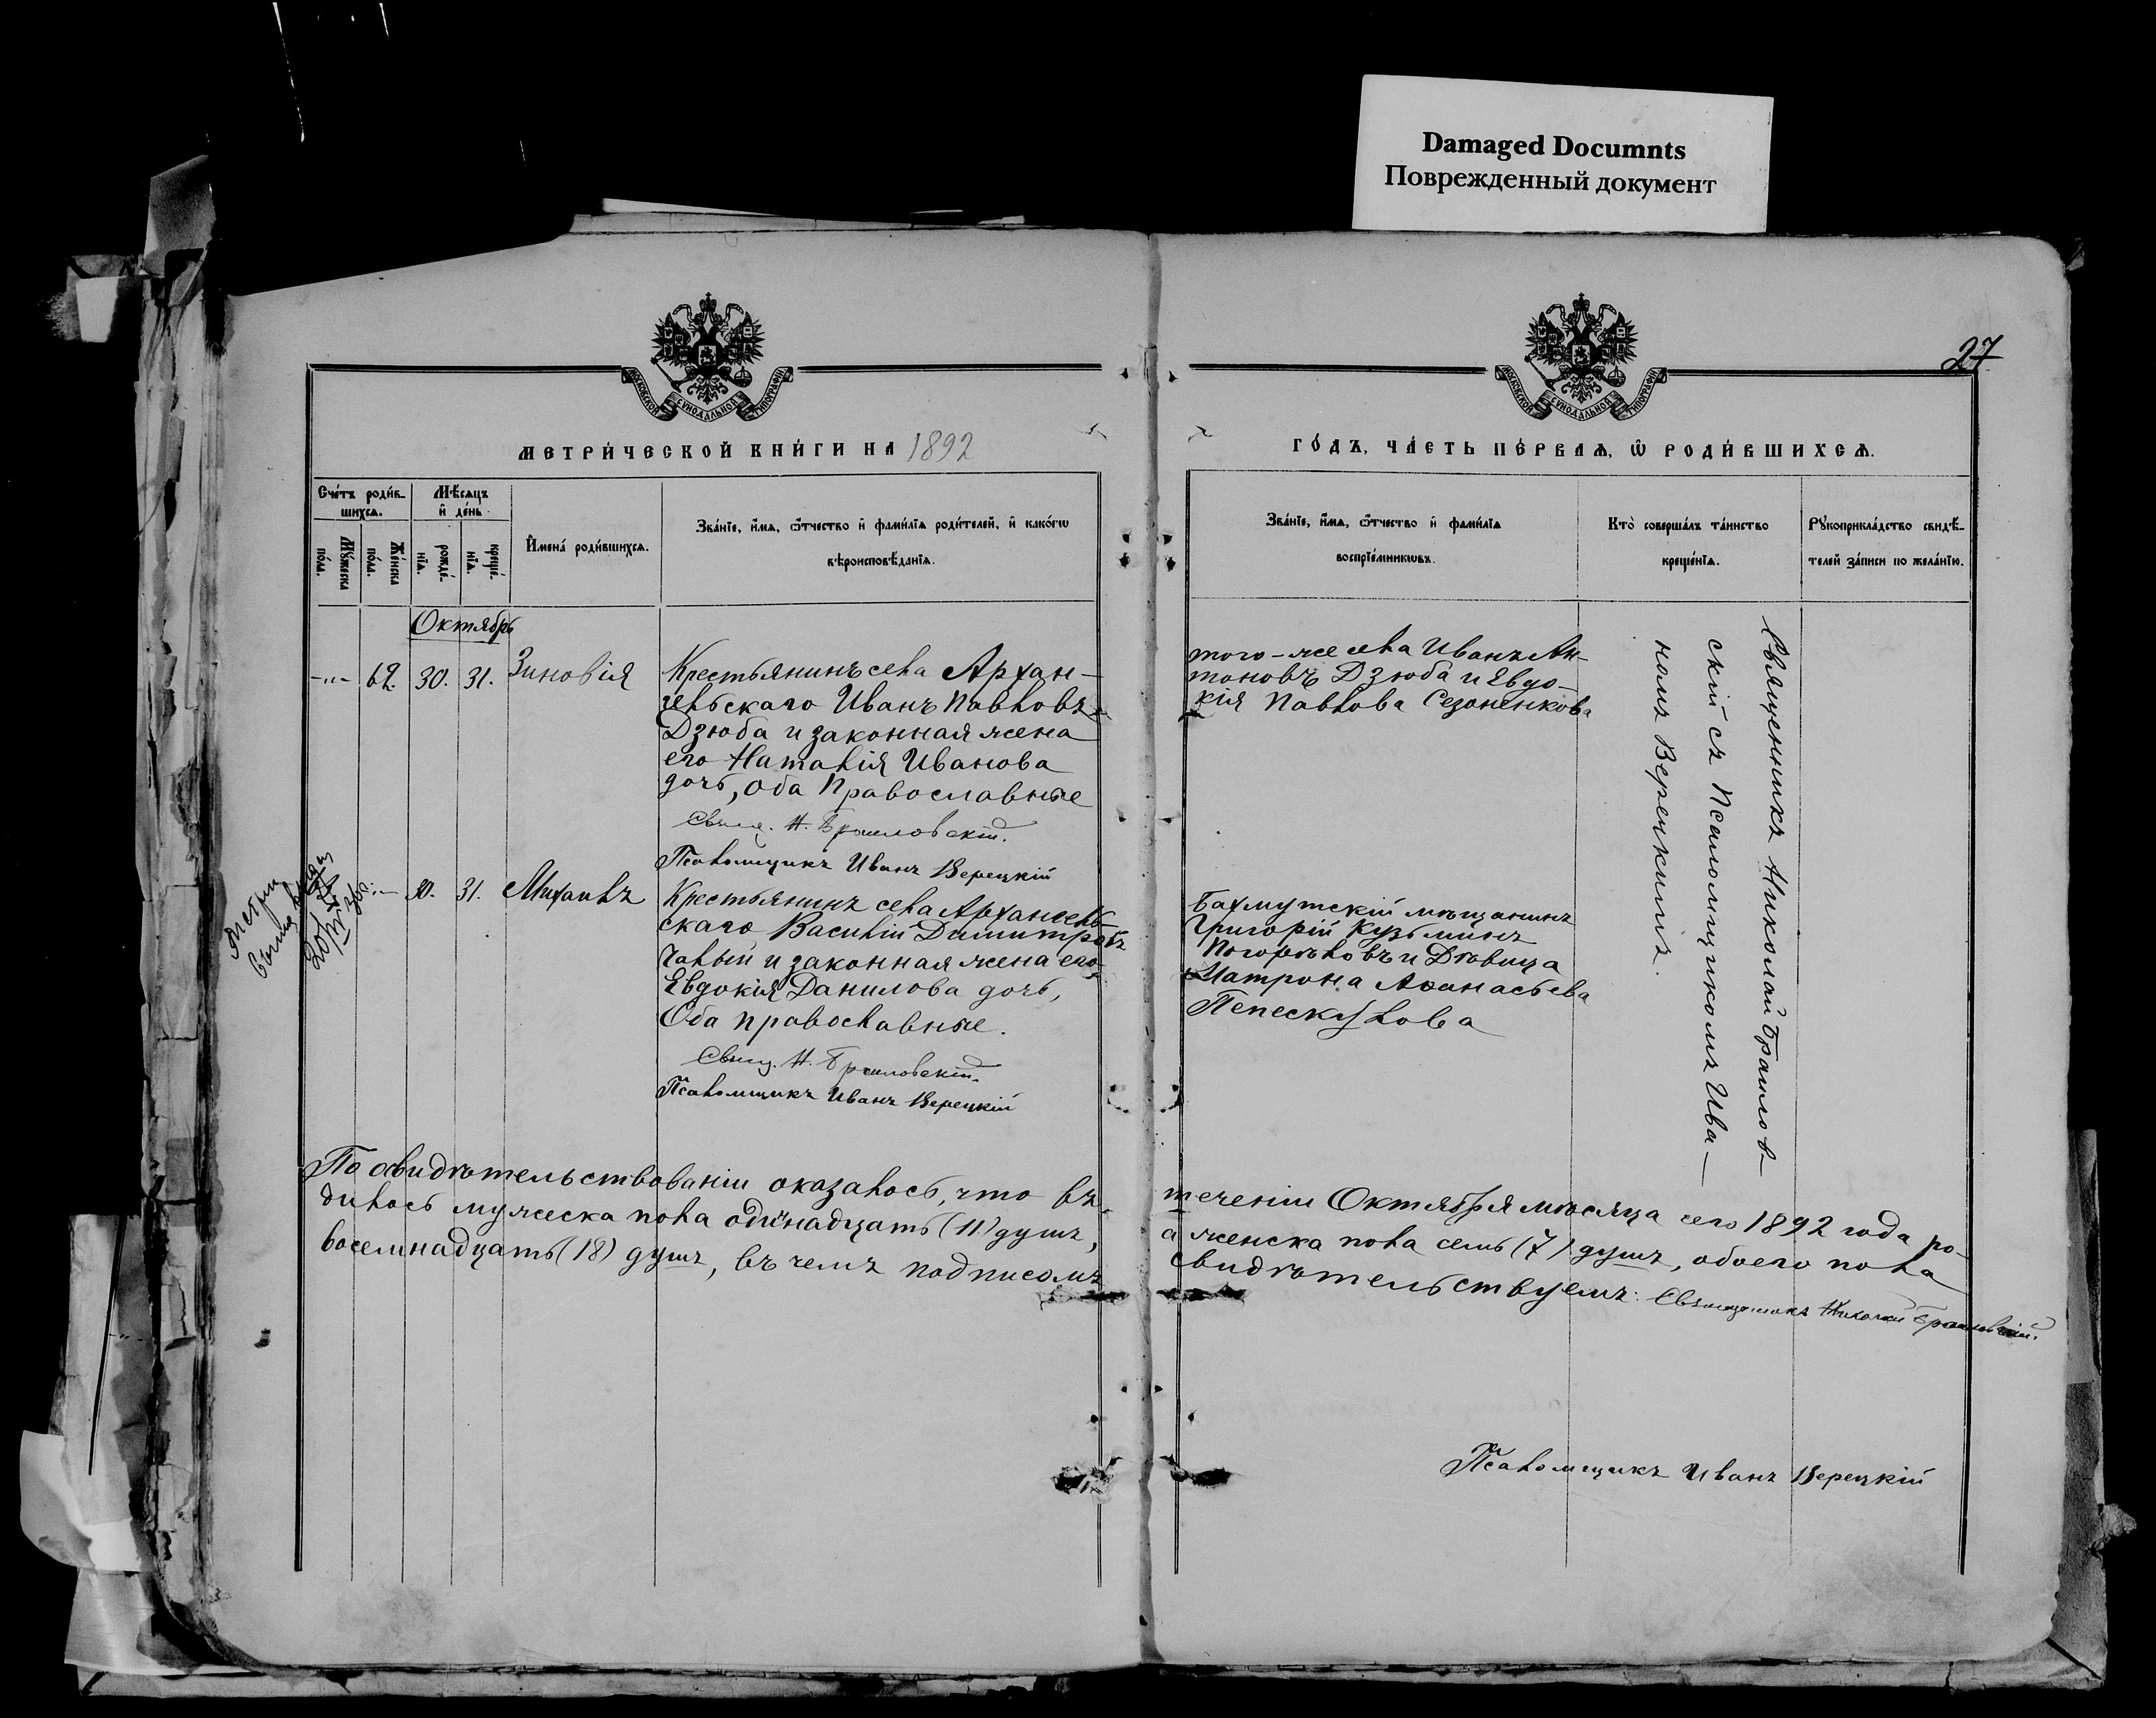 Damaged Documnts
Поврежденный документ
27
МОСКОВСКОЙ СУНОДАЛЬНОЙ ТИПОГРАФІИ
МОСКОВСКОЙ СУНОДАЛЬНОЙ ТИПОГРАФІИ
МЕТРИ́ЧЕСКОЙ КНИ́ГИ НА 1892
ГО́ДЪ, ЧА́СТЬ ПЕ́РВАѦ, Ѿ РОДИ́ВШИХСѦ.
Сче́тъ роди́в-
шихсѧ.
Мѣ́сѧцъ
и҆ де́нь
Мꙋ́жеска
по́ла.
Же́нска
по́ла.
рожде́-
нїѧ.
креще́-
нїѧ.
И҆мена̀ роди́вшихсѧ.
Зва́нїе, и҆́мѧ, ѻ҆́тчество и҆ фами́лїѧ роди́телей, и҆ како́гѡ
вѣроисповѣ́данїѧ.
Зва́нїе, и҆́мѧ, ѻ҆́тчество и҆ фами́лїѧ
воспрїе́мникѡвъ.
Кто̀ соверша́лъ та́инство
креще́нїѧ.
Рꙋкоприкла́дство свидѣ́-
телей за́писи по жела́нїю.
Октябрь
-"- 62. 30. 31. Зиновія
Крестьянинъ села Архан-
гельскаго Иванъ Павловъ
Дзюба и законная жена
его Наталія Иванова
дочь, Оба Православные
Свящ. Н. Браиловскій.
Псаломщикъ Иванъ Верецкій
того-же села Иванъ Ан-
тоновъ Дзюба и Евдо-
кія Павлова Сезоненкова
Священникъ Николай Браилов-
скій съ Псаломщикомъ Ива-
номъ Верецкимъ.
30. 31. Михаилъ
Крестьянинъ села Архангель-
скаго Василій Димитровъ
Чалый и законная жена его
Евдокія Данилова дочь,
Оба православные.
Свящ. Н. Браиловскій.
Псаломщикъ Иванъ Верецкій
Бахмутскій мѣщанинъ
Григорій Кузьминъ
Погорѣловъ и Дѣвица
Матрона Аѳанасьева
По освидѣтельствованіи оказалось, что въ
течении Октября мѣсяца сего 1892 года ро-
дилось мужеска пола одинадцать (11) душъ,
а женска пола семь (7) душъ, обоего пола
восемнадцать (18) душъ, въ чемъ подписомъ
свидѣтельствуемъ: Священникъ Николай Браиловскій.
Псаломщикъ Иванъ Верецкій